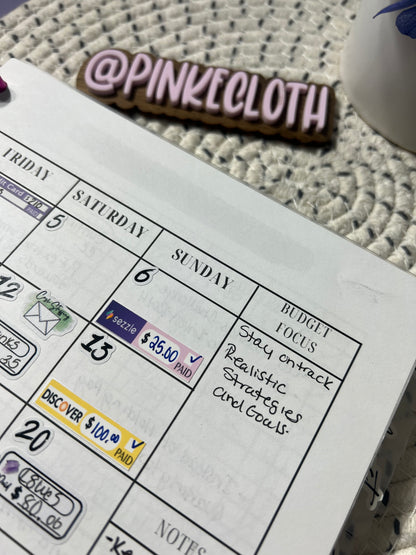 @PINKECLOTH
FRIDAY
SATURDAY
SUNDAY
BUDGET
FOCUS
5
6
sezzle $25.00 PAID
Stay on track
Realistic
Strategies
and Goals.
12
13
DISCOVER $100.00 PAID
20
$80.00
NOTES